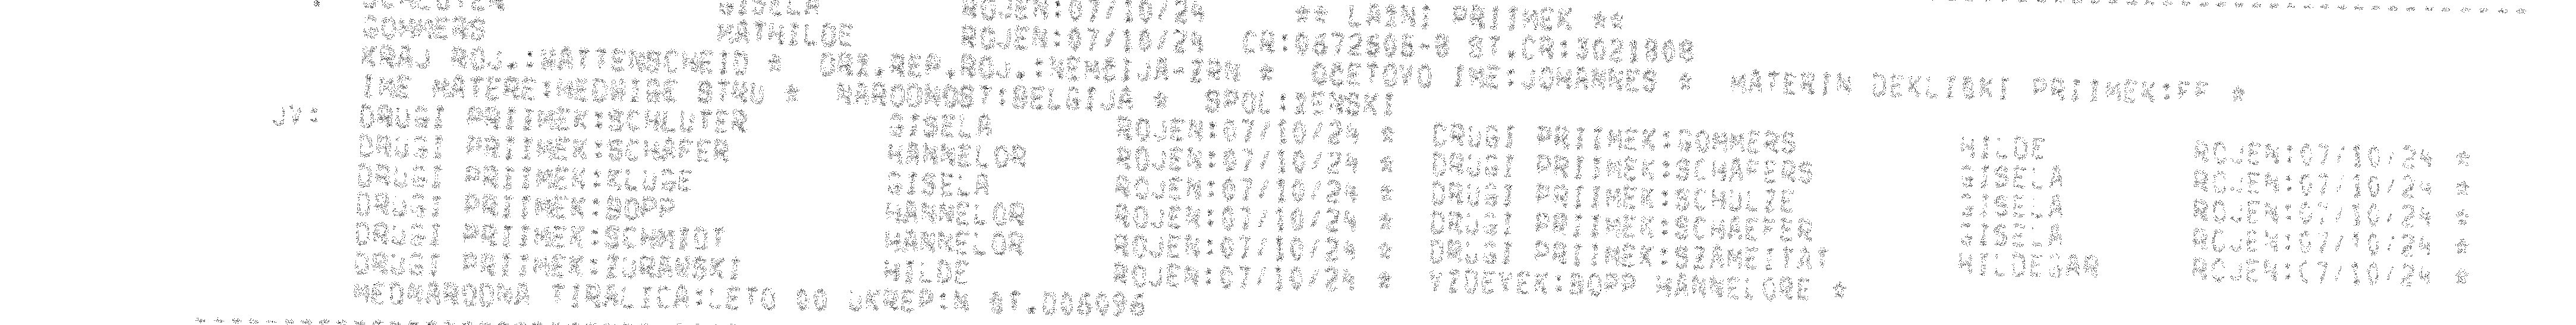 SCHLUTER GISELA ROJEN:07/10/24 ** LAZNI PRIIMEK **
GOMMERS MATHILDE ROJEN:07/10/24 CR:0672606-8 ST.CR:3021908
KRAJ ROJ.:WATTENSCHEID * DRZ.REP.ROJ.:NEMEIJA-ZRN * OCETOVO IME:JOHANNES * MATERIN DEKLISKI PRIIMEK:FF *
IME MATERE:HEDWIGE STRU * NARODNOST:BELGIJA * SPOL:ZENSKI
JV: DRUGI PRIIMEK:SCHLUTER GISELA ROJEN:07/10/24 * DRUGI PRIIMEK:GOMMERS HILDE ROJEN:07/10/24 *
DRUGI PRIIMEK:SCHAFER HANNELOR ROJEN:07/10/24 * DRUGI PRIIMEK:SCHAFERS GISELA ROJEN:07/10/24 *
DRUGI PRIIMEK:KLUGE GISELA ROJEN:07/10/24 * DRUGI PRIIMEK:SCHULZE GISELA ROJEN:07/10/24 *
DRUGI PRIIMEK:BOPP HANNELOR ROJEN:07/10/24 * DRUGI PRIIMEK:SCHAEFER GISELA ROJEN:07/10/24 *
DRUGI PRIIMEK:SCHMIDT HANNELOR ROJEN:07/10/24 * DRUGI PRIIMEK:SZAMEITAT HILDEGAR ROJEN:07/10/24 *
DRUGI PRIIMEK:ZURAWSKI HILDE ROJEN:07/10/24 * VIDEVEK:BOPP HANNELORE *
MEDNARODNA TIRALICA:LETO 00 UKREP:N ST.D06096